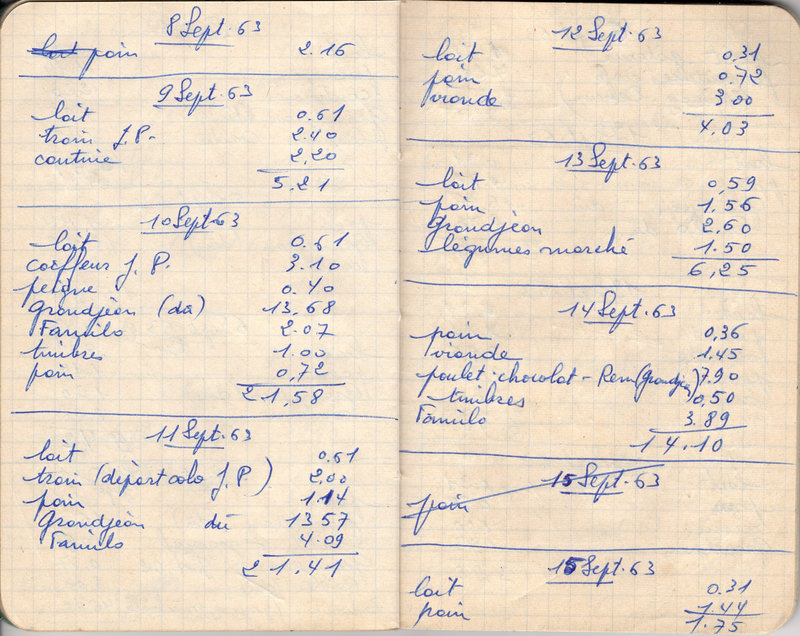 8 Sept. 63
lait pain 2.16
9 Sept. 63
lait 0.61
train J.P. 2.40
cantine 2,20
5.21
10 Sept. 63
lait 0.61
coiffeur J. P. 3.10
peigne 0.40
Grandjean (dû) 13,68
Familo 2.07
timbres 1.00
pain 0,72
21,58
11 Sept. 63
lait 0.61
train (départ colo J.P) 2,00
pain 1.14
Grandjean dû 13 57
Familo 4.09
21.41
12 Sept. 63
lait 0.31
pain 0.72
viande 3.00
4,03
13 Sept. 63
lait 0,59
pain 1,56
Grandjean 2,60
légumes marché 1.50
6,25
14 Sept. 63
pain 0,36
viande 1,45
poulet-chocolat - Rem (Grandjean) 7.90
timbres 0,50
Familo 3.89
14.10
15 Sept. 63
pain
15 Sept. 63
lait 0.31
pain 1.44
1.75